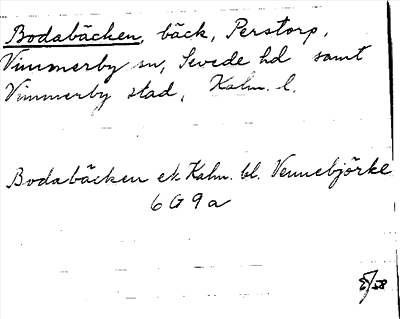 Bodabäcken, bäck, Perstorp,
Vimmerby sn, Sevede hd samt
Vimmerby stad, Kalm. l.
Bodabäcken ek Kalm. bl. Vennebjörke
6 G 9 a
/58